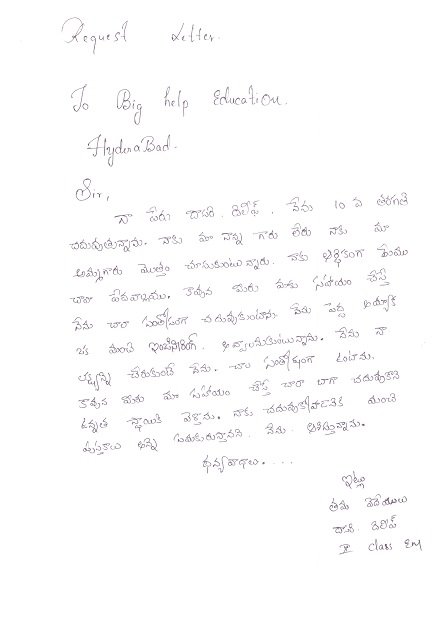 Request Letter.
To Big help Education.
HyderaBad.
Sir,
నా పేరు దాసరి. దిలీప్. నేను 10 వ తరగతి
చదువుతున్నాను. నాకు మా నాన్న గారు లేరు నాకు మా
అమ్మగారు మొత్తం చూసుకుంటున్నారు. నాకు ఆర్థికంగా మేము
చాలా పేదవాళ్లము. కావున మీరు మాకు సహాయం చేస్తే
నేను చాలా సంతోషంగా చదువుకుంటాను నేను పెద్ద అయ్యాక
ఒక మంచి ఇంజినీరింగ్. అవ్వాలనుకుంటున్నాను. నేను నా
లక్ష్యాన్ని చేరుకుంటే నేను. చాలా సంతోషంగా ఉంటాను.
కావున మీరు మా సహాయం చేస్తే చాలా బాగా చదువుకొని
ఉన్నత స్థాయికి వెళ్తాను. నాకు చదువుకోవడానికి మంచి
పుస్తకాలు అన్ని సమకూరుస్తారని. నేను. ఆశిస్తున్నాను.
ధన్యవాదాలు. . . .
ఇట్లు
తమ విదేయులు
దాసరి దిలీప్
X class EM